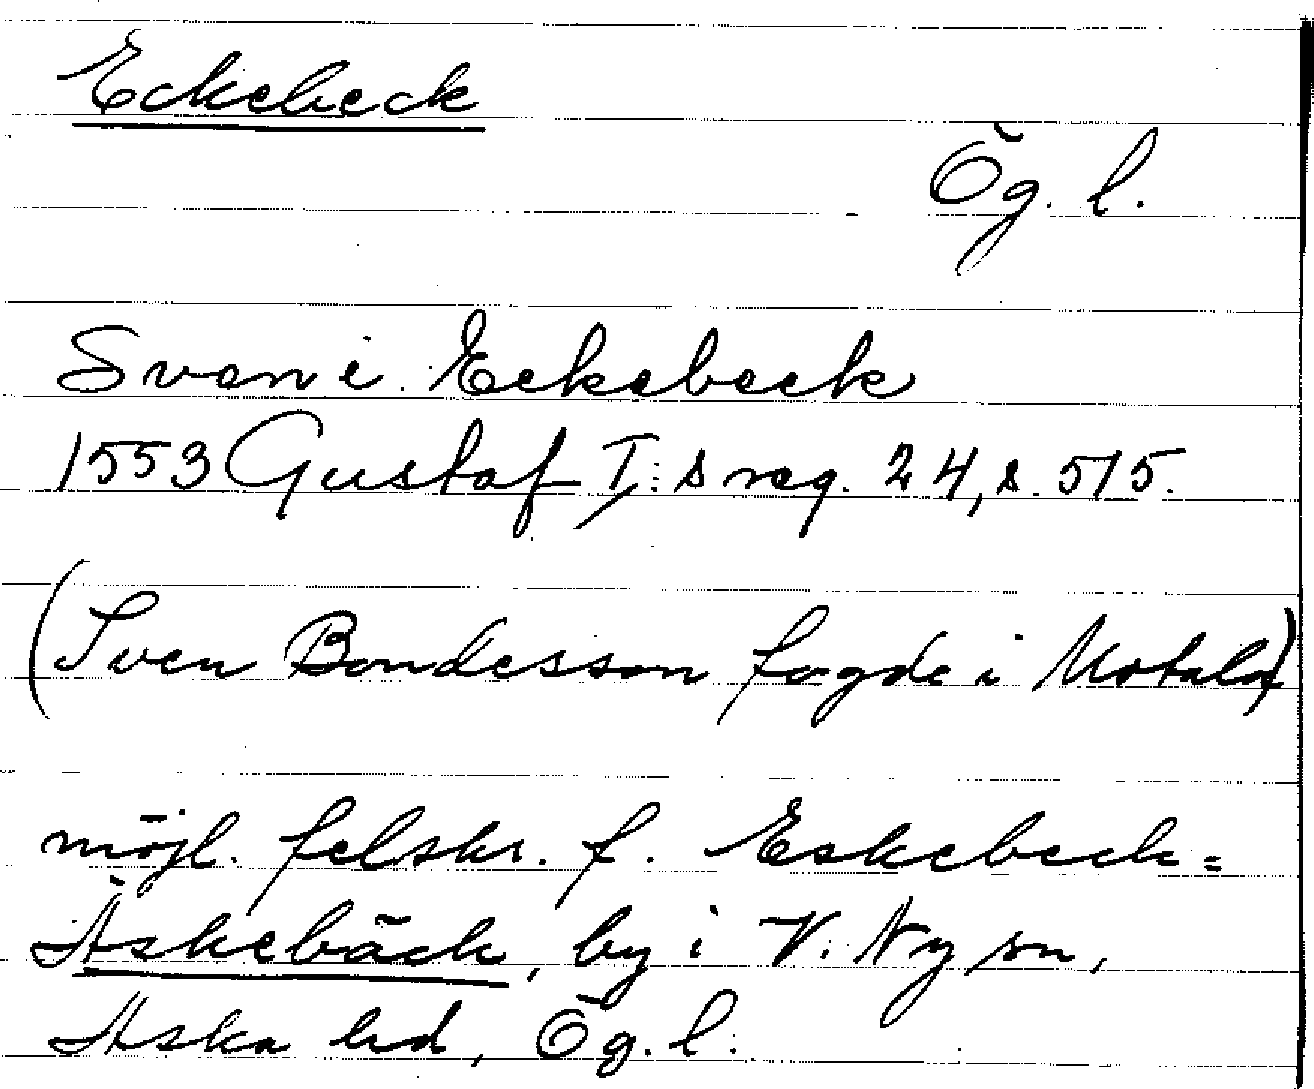 Eckebeck
Ög. l.
Sven i Eckebeck
1553 Gustaf I:s reg. 24, s. 515.
(Sven Bondesson fogde i Motala)
möjl. felskr. f. Eskebeck =
Äskebäck, by i V. Ny sn,
Aska hd, Ög. l.